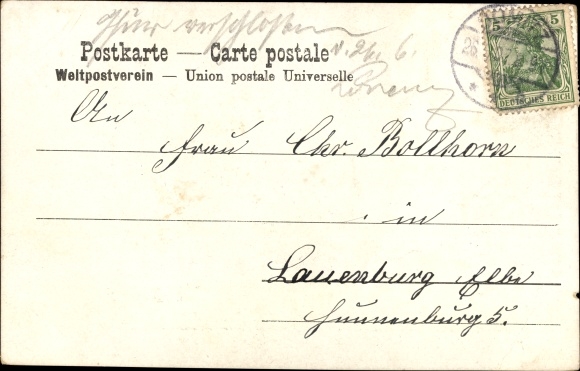 Thür verschlossen
v. 26. 6.
Lorenz
Postkarte — Carte postale
Weltpostverein — Union postale Universelle
5 5
DEUTSCHES REICH
An
Frau Chr. Bollhorn
in
Lauenburg Elbe
Hunnenburg 5.